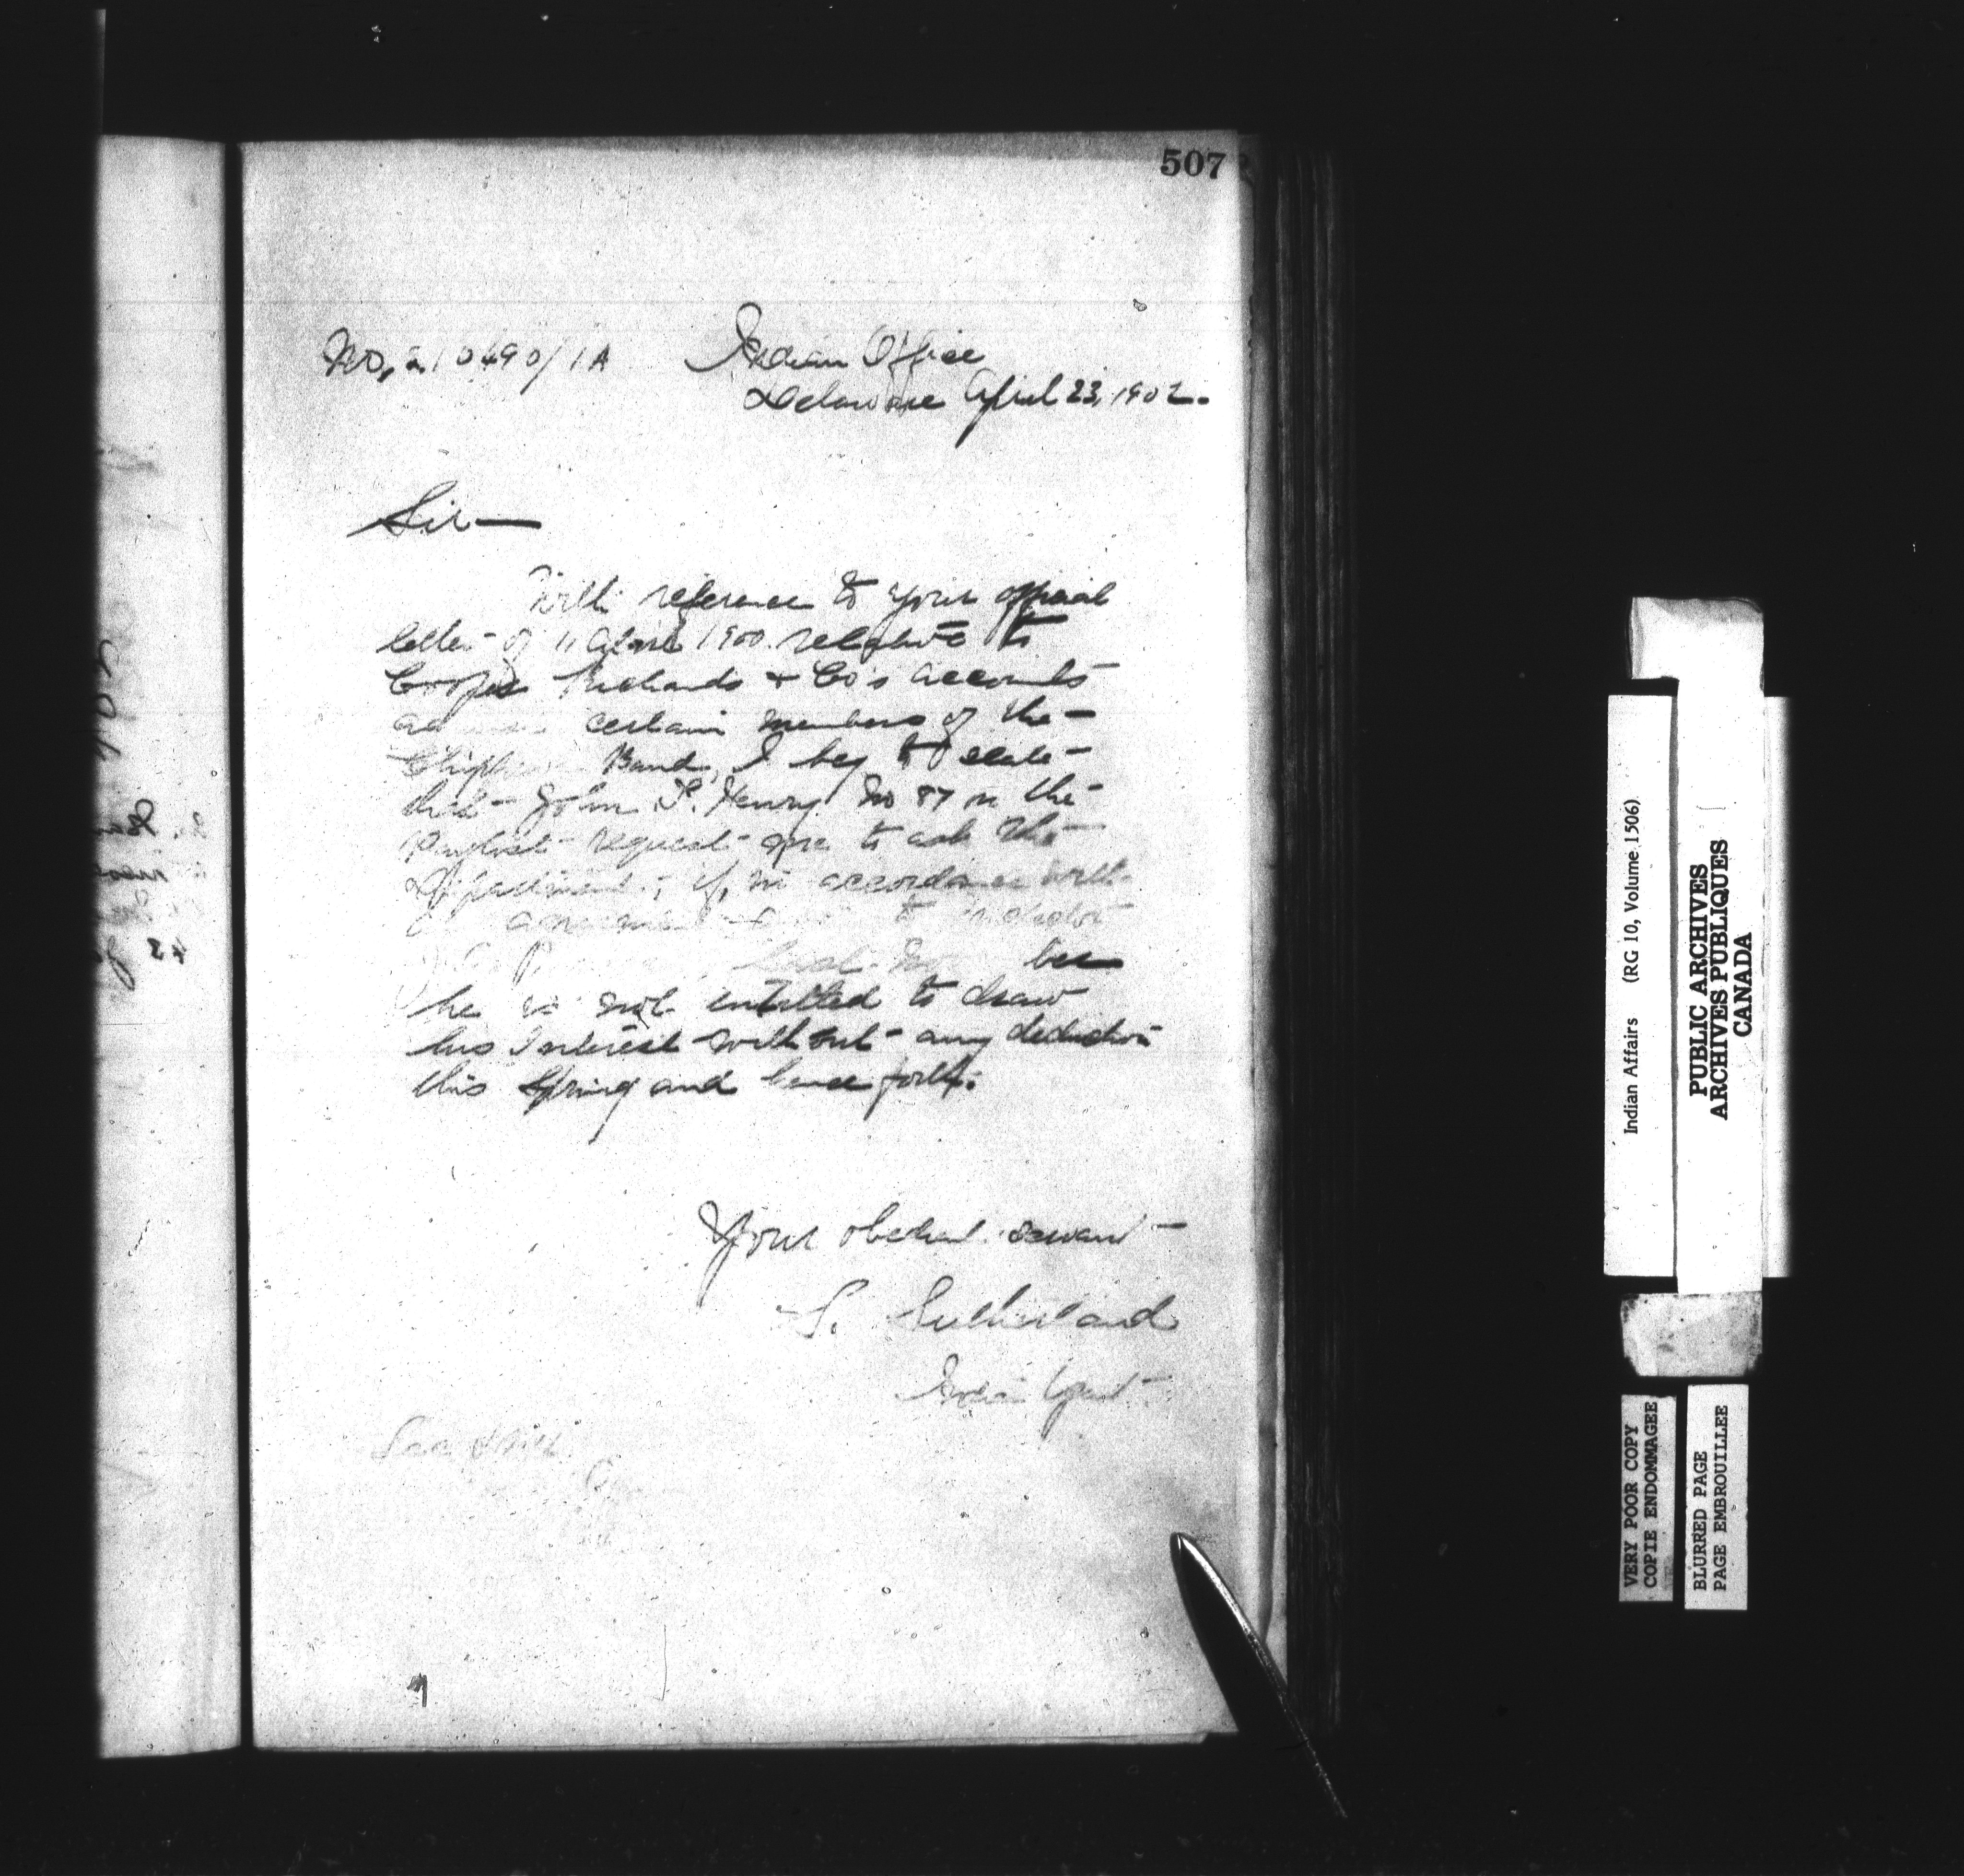 507
No. 210490/1A Indian Office
Delaware April 23, 1902.
Sir—
With reference to your official
letter of 11 April 1900 relative to
Cooper Richards & Co's accounts
certain members of the
Chippewa Band, I beg to state
that John P. Henry No 87 on the
Paylist request me to ask the
Department, if, in accordance with
to
be
he is not entitled to draw
his Interest without any deduction
this Spring and henceforth.
Your obedient servant
S. Sutherland
Indian Agent
Indian Affairs (RG 10, Volume 1506)
PUBLIC ARCHIVES
ARCHIVES PUBLIQUES
CANADA
VERY POOR COPY
COPIE ENDOMMAGEE
BLURRED PAGE
PAGE EMBROUILLEE